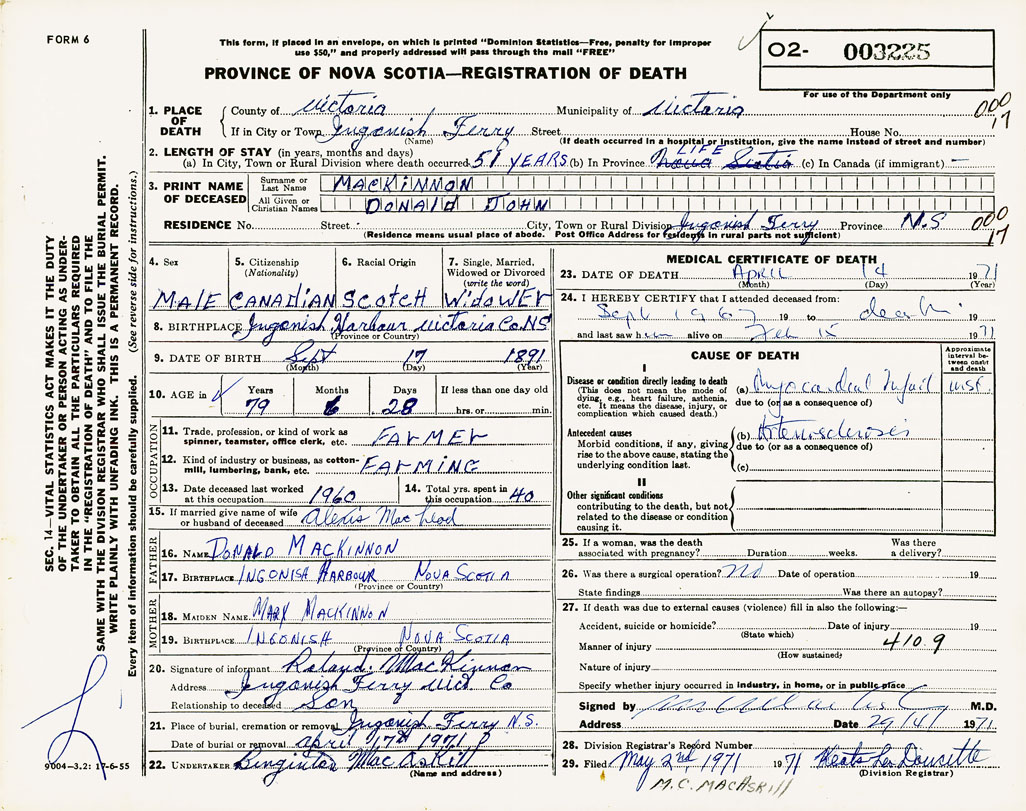 FORM 6
This form, if placed in an envelope, on which is printed "Dominion Statistics—Free, penalty for improper
use $50," and properly addressed will pass through the mail "FREE"
PROVINCE OF NOVA SCOTIA—REGISTRATION OF DEATH
O2- 003225
For use of the Department only
SEC. 14—VITAL STATISTICS ACT MAKES IT THE DUTY
OF THE UNDERTAKER OR PERSON ACTING AS UNDER-
TAKER TO OBTAIN ALL THE PARTICULARS REQUIRED
IN THE "REGISTRATION OF DEATH" AND TO FILE THE
SAME WITH THE DIVISION REGISTRAR WHO SHALL ISSUE THE BURIAL PERMIT.
WRITE PLAINLY WITH UNFADING INK. THIS IS A PERMANENT RECORD.
Every item of information should be carefully supplied. (See reverse side for instructions.)
1. PLACE OF DEATH
County of Victoria Municipality of Victoria 000 17
If in City or Town Ingonish Ferry Street House No.
(Name) (If death occurred in a hospital or institution, give the name instead of street and number)
2. LENGTH OF STAY (in years, months and days)
(a) In City, Town or Rural Division where death occurred 51 YEARS (b) In Province LIFE Nova Scotia (c) In Canada (if immigrant) —
3. PRINT NAME OF DECEASED
Surname or Last Name MACKINNON
All Given or Christian Names DONALD JOHN
RESIDENCE No. Street City, Town or Rural Division Ingonish Ferry Province N.S 000 17
(Residence means usual place of abode. Post Office Address for residents in rural parts not sufficient)
4. Sex MALE
5. Citizenship (Nationality) CANADIAN
6. Racial Origin SCOTCH
7. Single, Married, Widowed or Divorced (write the word) WidoWEr
8. BIRTHPLACE Ingonish Harbour Victoria Co NS
(Province or Country)
9. DATE OF BIRTH Sept 17 1891
(Month) (Day) (Year)
10. AGE in Years 79 Months 6 Days 28 If less than one day old hrs. or min.
OCCUPATION
11. Trade, profession, or kind of work as spinner, teamster, office clerk, etc. FARMEr
12. Kind of industry or business, as cotton-mill, lumbering, bank, etc. FARMING
13. Date deceased last worked at this occupation 1960
14. Total yrs. spent in this occupation 40
15. If married give name of wife or husband of deceased Alexis MacLeod
FATHER
16. Name DONALD MACKINNON
17. BIRTHPLACE INGONISH HARBOUR NOVA SCOTIA
(Province or Country)
MOTHER
18. MAIDEN NAME MARY MACKINNON
19. BIRTHPLACE INGONISH NOVA SCOTIA
(Province or Country)
20. Signature of informant Roland. MacKinnon
Address Ingonish Ferry Vict Co
Relationship to deceased son
21. Place of burial, cremation or removal Ingonish Ferry N.S.
Date of burial or removal april 17th 1971
22. UNDERTAKER Mac Askill
(Name and address)
9004-3.2: 17-6-55
MEDICAL CERTIFICATE OF DEATH
23. DATE OF DEATH APRIL 14 1971
(Month) (Day) (Year)
24. I HEREBY CERTIFY that I attended deceased from:
Sept 1967 19 to death 19
and last saw him alive on Feb 15 1971
CAUSE OF DEATH
Approximate interval between onset and death
I
Disease or condition directly leading to death
(This does not mean the mode of dying, e.g., heart failure, asthenia, etc. It means the disease, injury, or complication which caused death.)
(a) Myocardial Infarct inst.
due to (or as a consequence of)
Antecedent causes
Morbid conditions, if any, giving rise to the above cause, stating the underlying condition last.
(b) Arteriosclerosis
due to (or as a consequence of)
(c)
II
Other significant conditions
contributing to the death, but not related to the disease or condition causing it.
25. If a woman, was the death associated with pregnancy? Duration weeks. Was there a delivery?
26. Was there a surgical operation? No Date of operation 19
State findings Was there an autopsy?
27. If death was due to external causes (violence) fill in also the following:—
Accident, suicide or homicide? Date of injury 19
(State which)
Manner of injury 410.9
(How sustained)
Nature of injury
Specify whether injury occurred in industry, in home, or in public place
Signed by M.D.
Address Date 29/4/ 1971.
28. Division Registrar's Record Number
29. Filed May 2nd 1971 1971
(Division Registrar)
M.C. MACASKILL